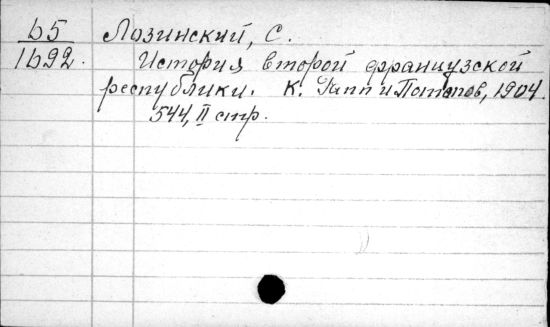 65 Лозинский, С.
1692. История второй французской
республики. К. Гапп и Потапов, 1904.
544, II стр.